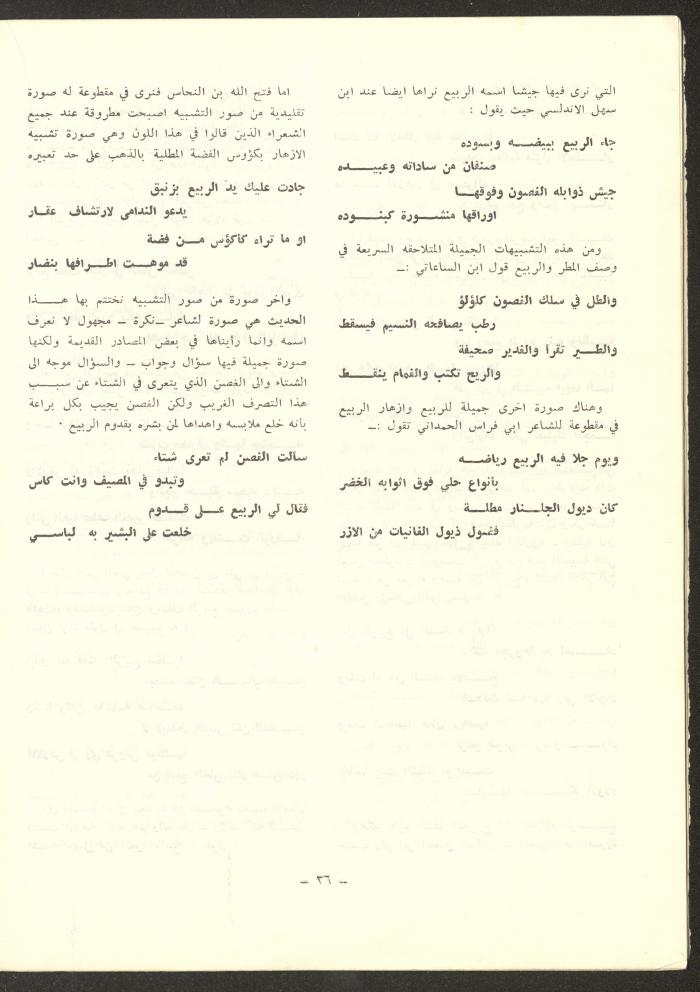 التي نرى فيها جيشا اسمه الربيع نراها ايضا عند ابن
سهل الاندلسي حيث يقول :
جاء الربيع ببيضـــه وبسوده
صنفان من ساداته وعبيـــده
جيش ذوابله الغصون وفوقهـــا
اوراقها منشـــورة كبنـــوده
ومن هذه التشبيهات الجميلة المتلاحقه السريعة في
وصف المطر والربيع قول ابن الساعاتي :ــ
والطل في سلك الغصون كلؤلؤ
رطب يصافحه النسيم فيسقط
والطـــير تقرأ والغدير صحيفة
والريح تكتب والغمام ينقـــط
وهناك صورة اخرى جميلة للربيع وازهار الربيع
في مقطوعة للشاعر ابي فراس الحمداني تقول :ــ
ويوم جلا فيه الربيع رياضـــه
بأنواع حلي فوق اثوابه الخضر
كان ذيول الجلـــنار مطلـــة
فضول ذيول الغانيات من الازر
اما فتح الله بن النحاس فنرى في مقطوعة له صورة
تقليدية من صور التشبيه اصبحت مطروقة عند جميع
الشعراء الذين قالوا في هذا اللون وهي صورة تشبيه
الازهار بكؤوس الفضة المطلية بالذهب على حد تعبيره
جادت عليك يد الربيع بزنبق
يدعو الندامى لارتشاف عقـار
او ما تراه كأكؤس مـــن فضة
قد موهـــت اطـــرافها بنضار
وآخر صورة من صور التشبيه نختتم بها هـــذا
الحديث هي صورة لشاعر ــ نكرة ــ مجهول لا نعرف
اسمه وانما رأيناها في بعض المصادر القديمة ولكنها
صورة جميلة فيها سؤال وجواب ــ والسؤال موجه الى
الشتاء والى الغصن الذي يتعرى في الشتاء عن سبـــب
هذا التصرف الغريب ولكن الغصن يجيب بكل براعة
بأنه خلع ملابسه واهداها لمن بشره بقدوم الربيع .
سألت الغصن لم تعرى شتاء
وتبدو في المصيف وانت كاس
فقال لي الربيع علـــى قـــدوم
خلعت على البشير به لباســـي
ــ ٣٦ ــ